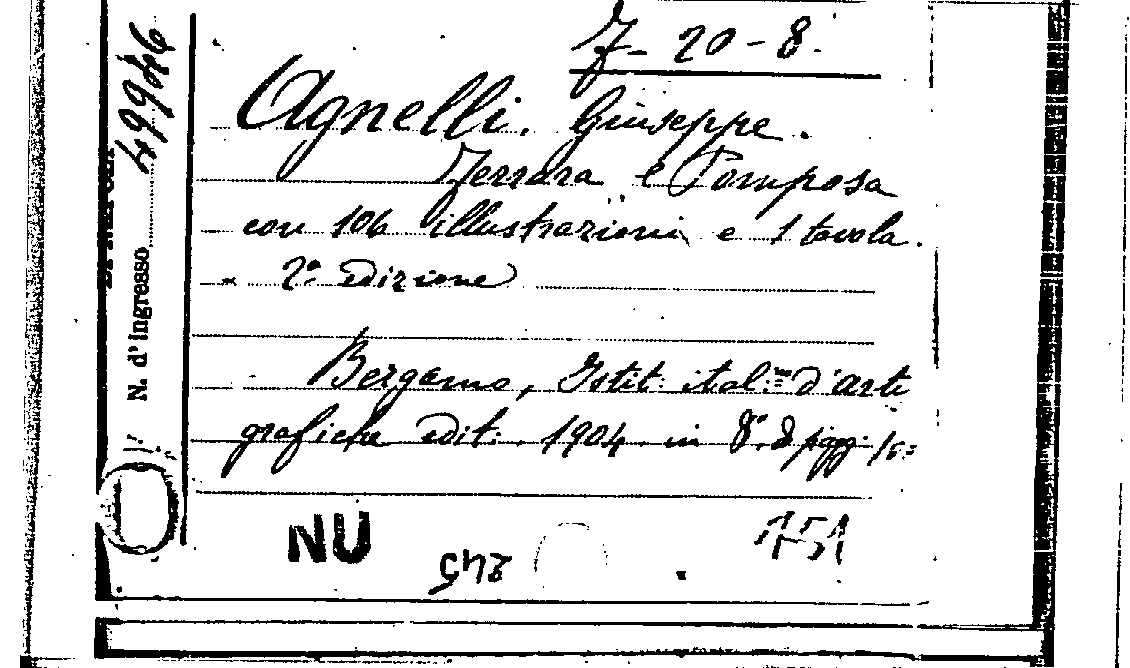 7-20-8.
Agnelli. Giuseppe.
Ferrara e Pomposa
con 106 illustrazioni e 1 tavola.
2ª Edizione
Bergamo, Istit. ital. d'arti
grafiche edit. 1904 in 8º d pgg.
N. d'Ingresso 49946
NU
245
151